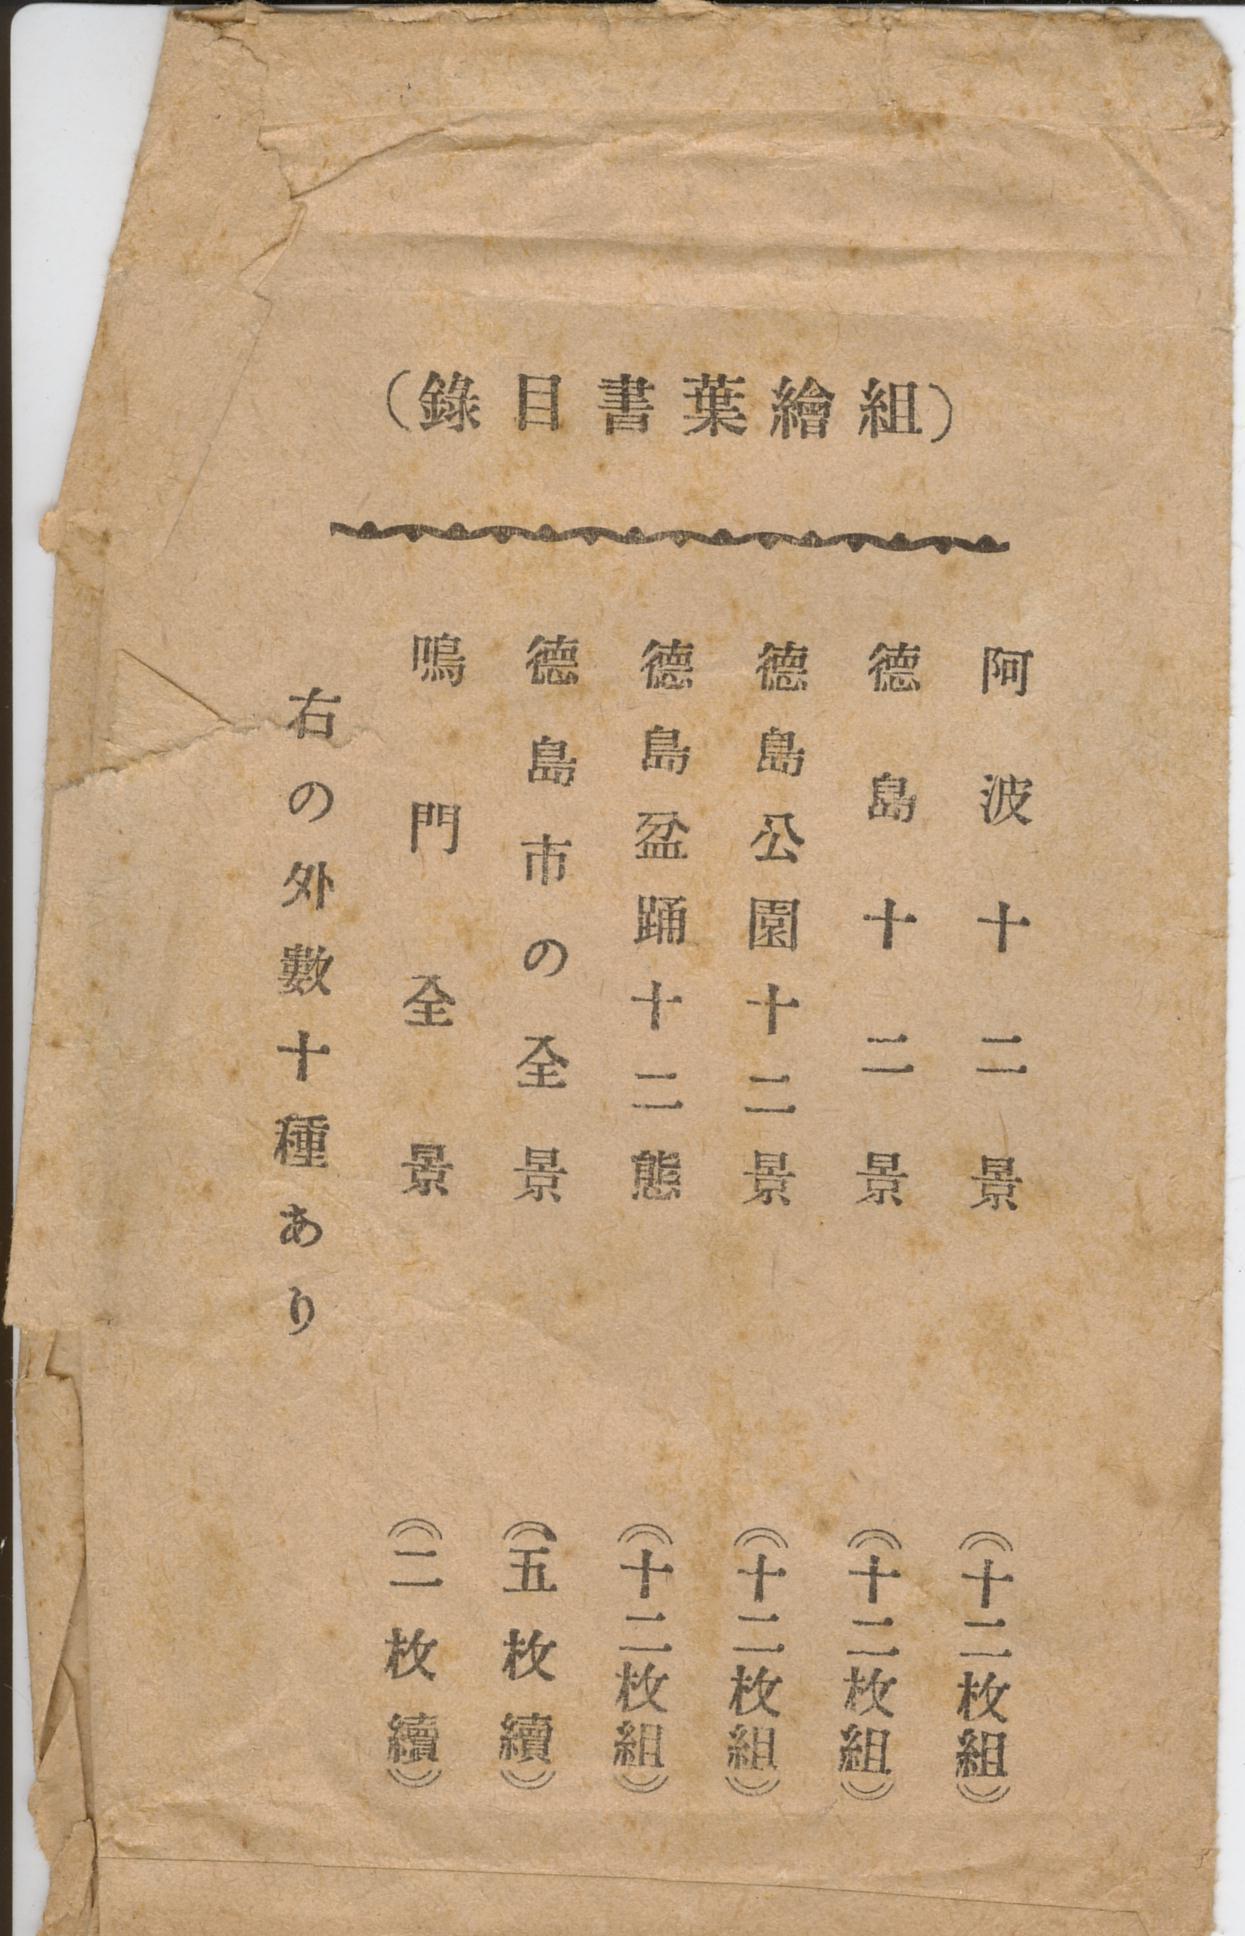 (組繪葉書目錄)
阿波十二景 ((十二枚組))
德島十二景 ((十二枚組))
德島公園十二景 ((十二枚組))
德島盆踊十二態 ((十二枚組))
德島市の全景 ((五枚續))
鳴門全景 ((二枚續))
右の外數十種あり